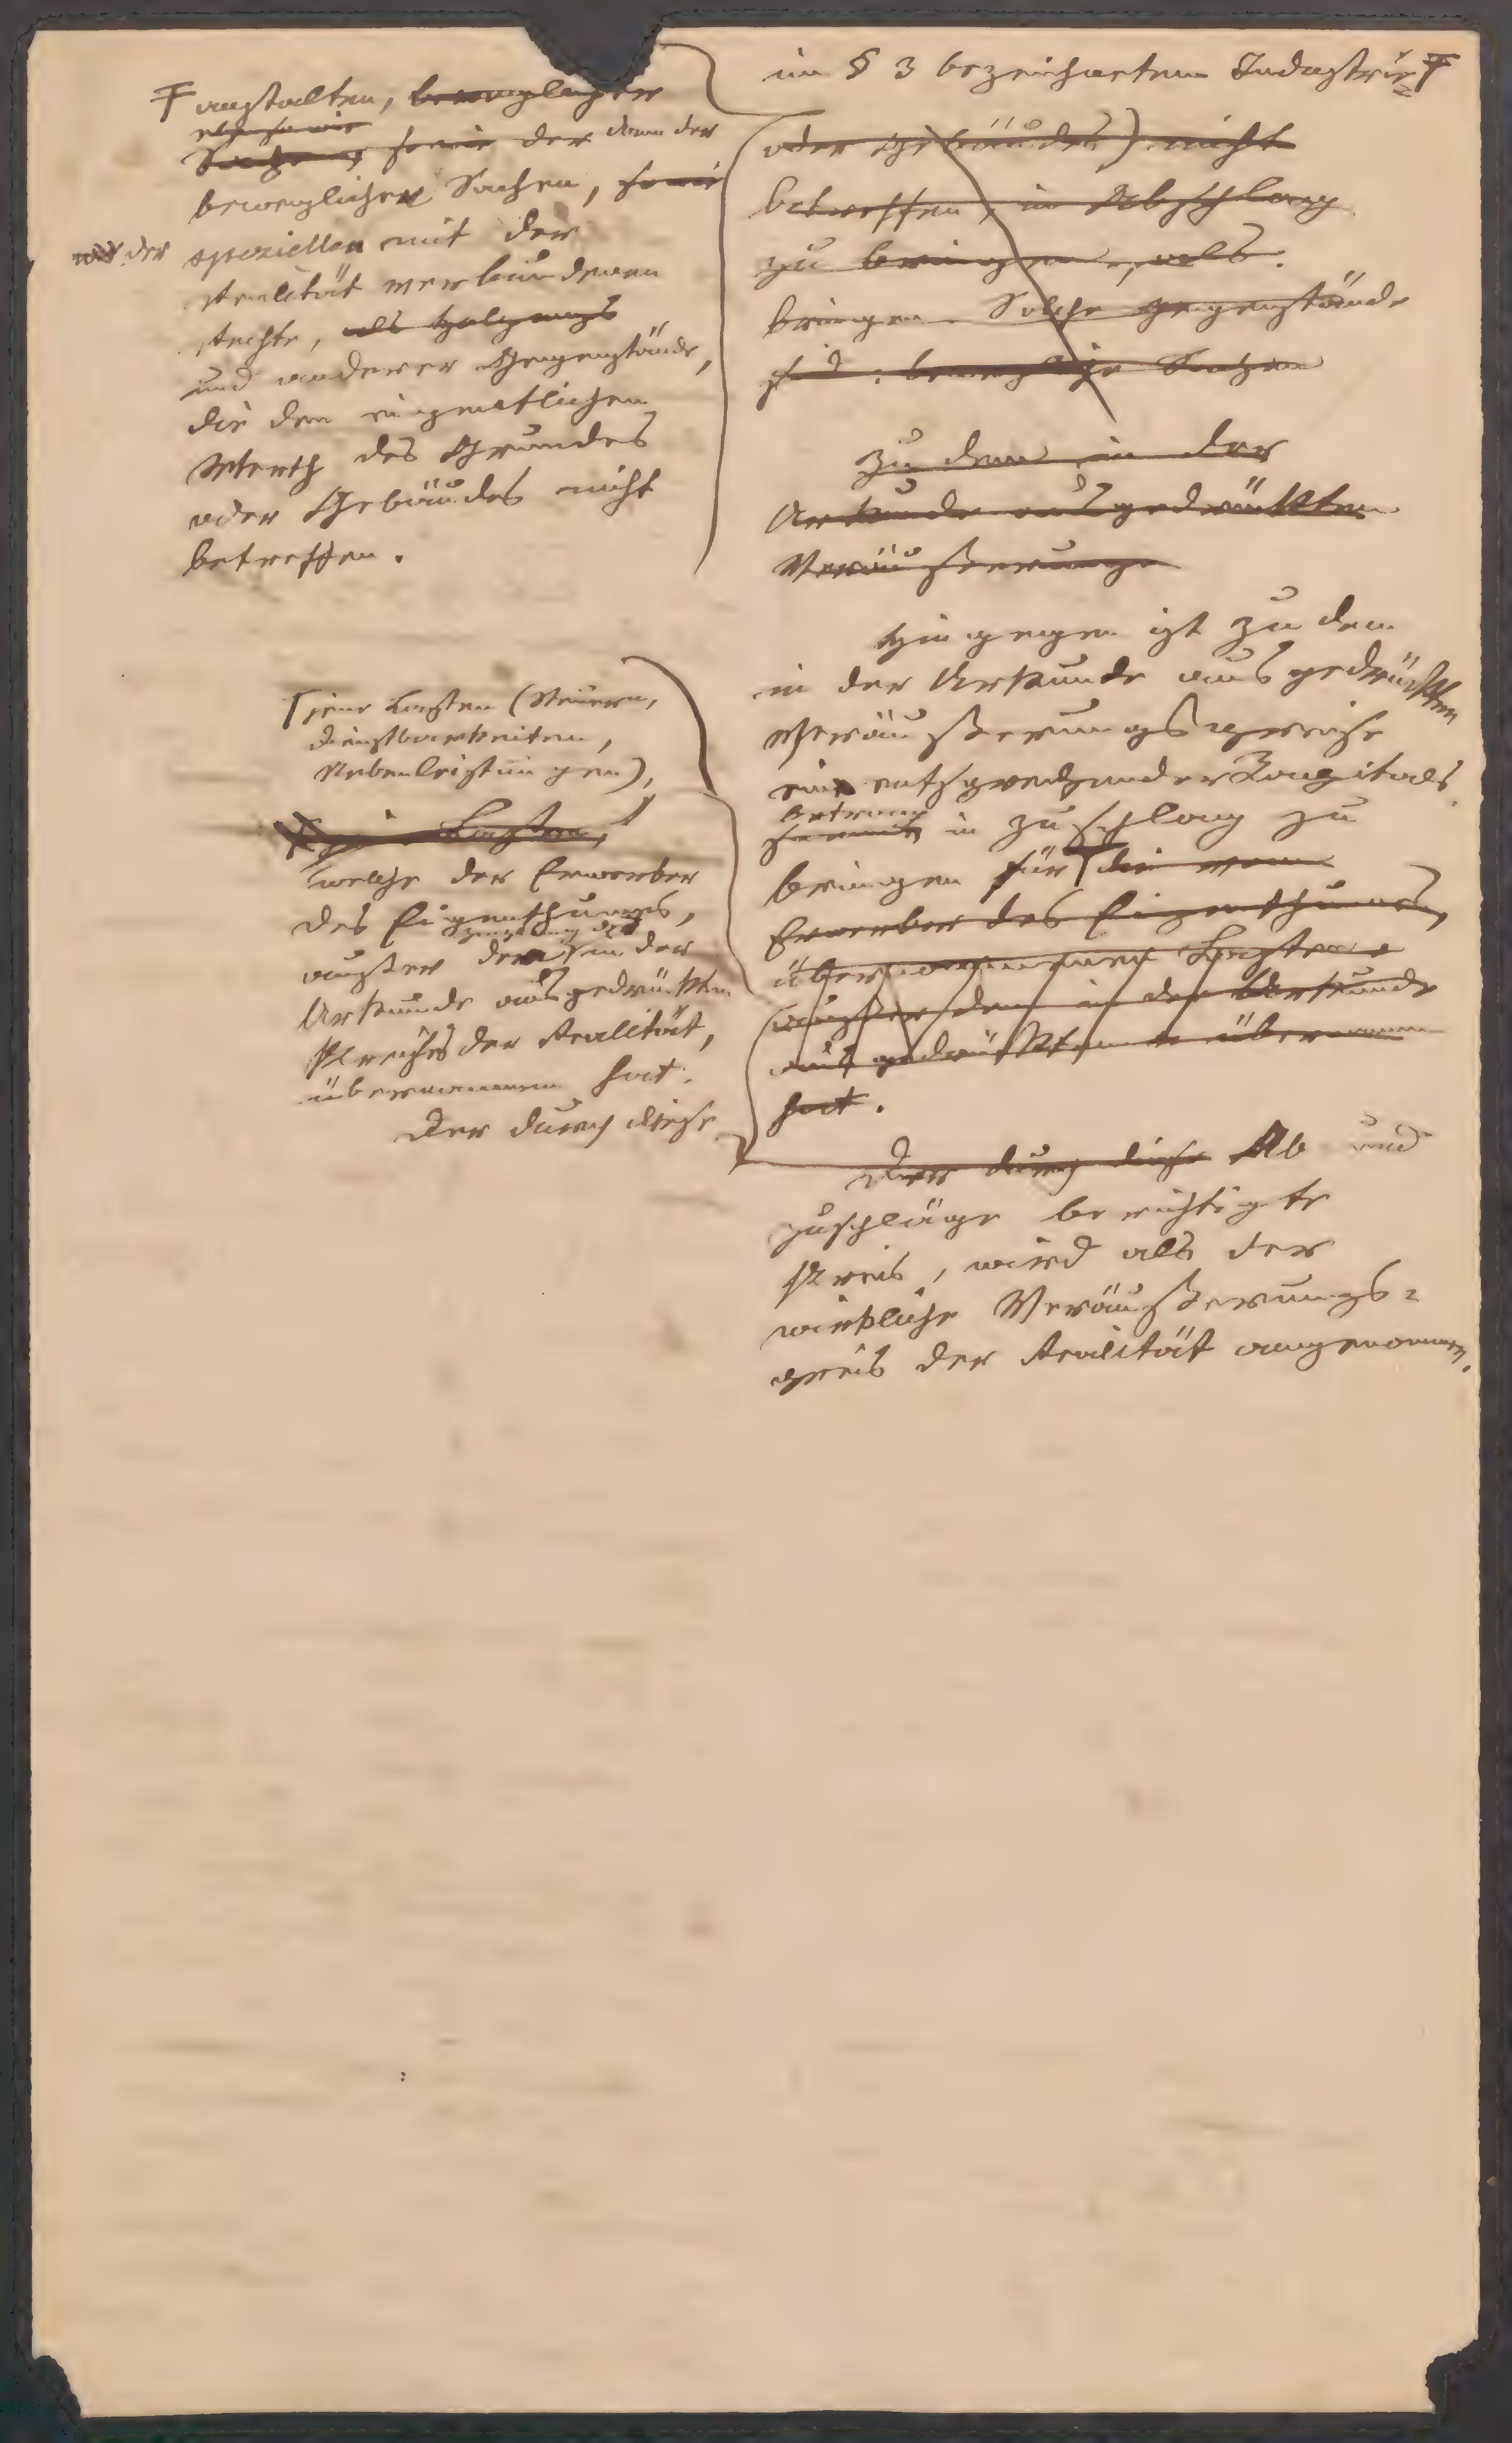 im § 3 bezeichneten Industrie=
anstalten, beweglicher
ebenso wie
Sachen, sowie der dann der
beweglichen Sachen, sowie
der speziellen mit der
Realität verbundenen
Rechte, als
und anderer Gegenstände,
die den eigentlichen
Werth des Grundes
oder Gebäudes nicht
betreffen.
oder Gebäudes) nicht
betreffen, in Abschlag
zu bringen, als
bringen. Solche Gegenstände
sind: bewegliche Sachen
Zu dem in der
Urkunde ausgedrückten
Veräußerungs
Hingegen ist zu dem
in der Urkunde ausgedrückten
Veräußerungspreise
ein entsprechender Kapitals
betrag
in Zuschlag zu
bringen für die vom
Erwerber des Eigenthumes,
übernommenen Lasten
(außer dem in der Urkunde
ausgedrückten übernommen
hat.
jene Lasten (Steuern,
Dienstbarkeiten,
Nebenleistungen),
Lasten,
welche der Erwerber
des Eigenthumes,
außer dem in der
Urkunde ausgedrückten
Preise der Realität,
übernommen hat.
Der durch diese
Der durch diese Ab und
Zuschläge berichtigte
Preis, wird als der
wirkliche Veräußerungs=
preis der Realität angenommen.